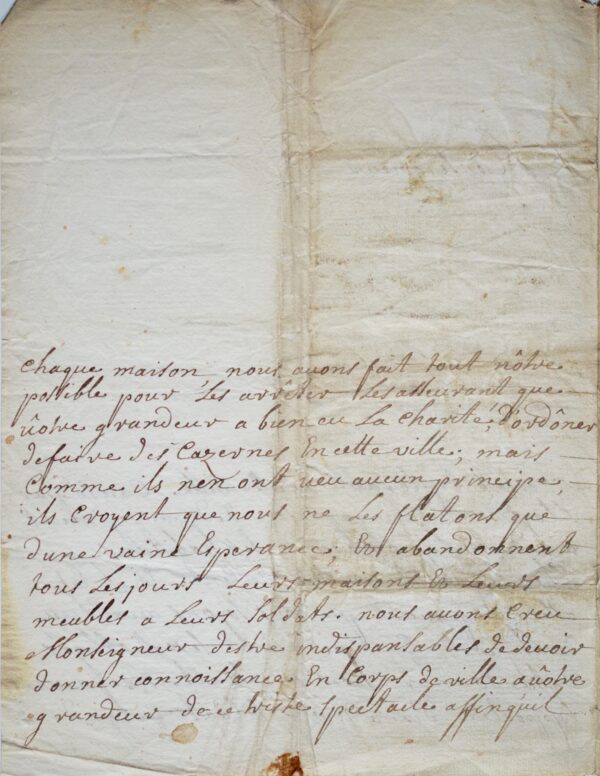 chaque maison nous avons fait tout nôtre
possible pour les arrêter les asseurant que
vôtre grandeur a bien eu La charité, d'ordôner
defaire des Cazernes En cette ville; mais
Comme ils nen ont veu aucun principe,
ils Croyent que nous ne Les flatons que
dune vaine Esperance; Et abandonnent
tous Les jours Leurs maisons Et Leurs
meubles a Leurs Soldats. nous avons Creu
Monseigneur destre indispansables de devoir
donner connoissance En Corps de ville a vôtre
grandeur de ce triste spectacle affinquil